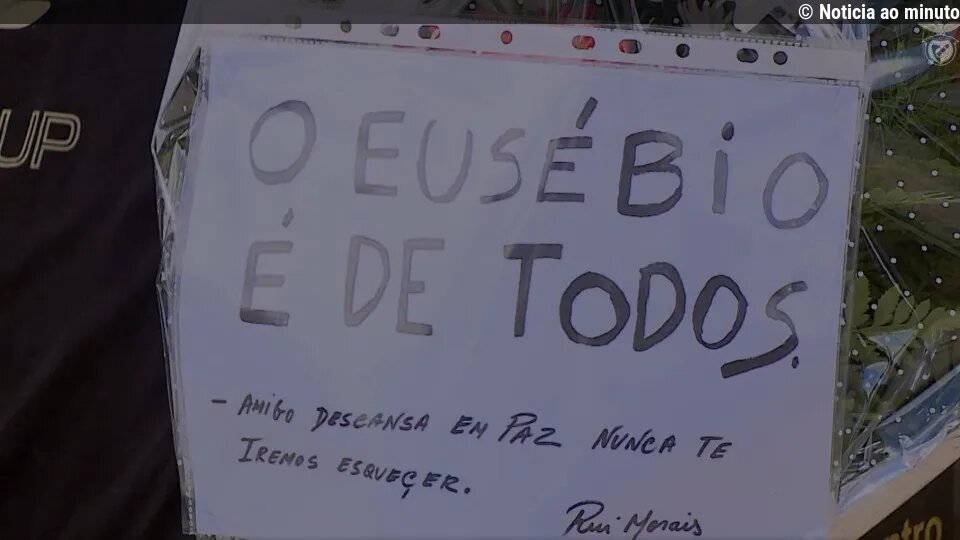 © Noticia ao minuto
UP
O EUSÉBIO
É DE TODOS.
- AMIGO DESCANSA EM PAZ NUNCA TE
IREMOS ESQUEÇER.
Rui Morais